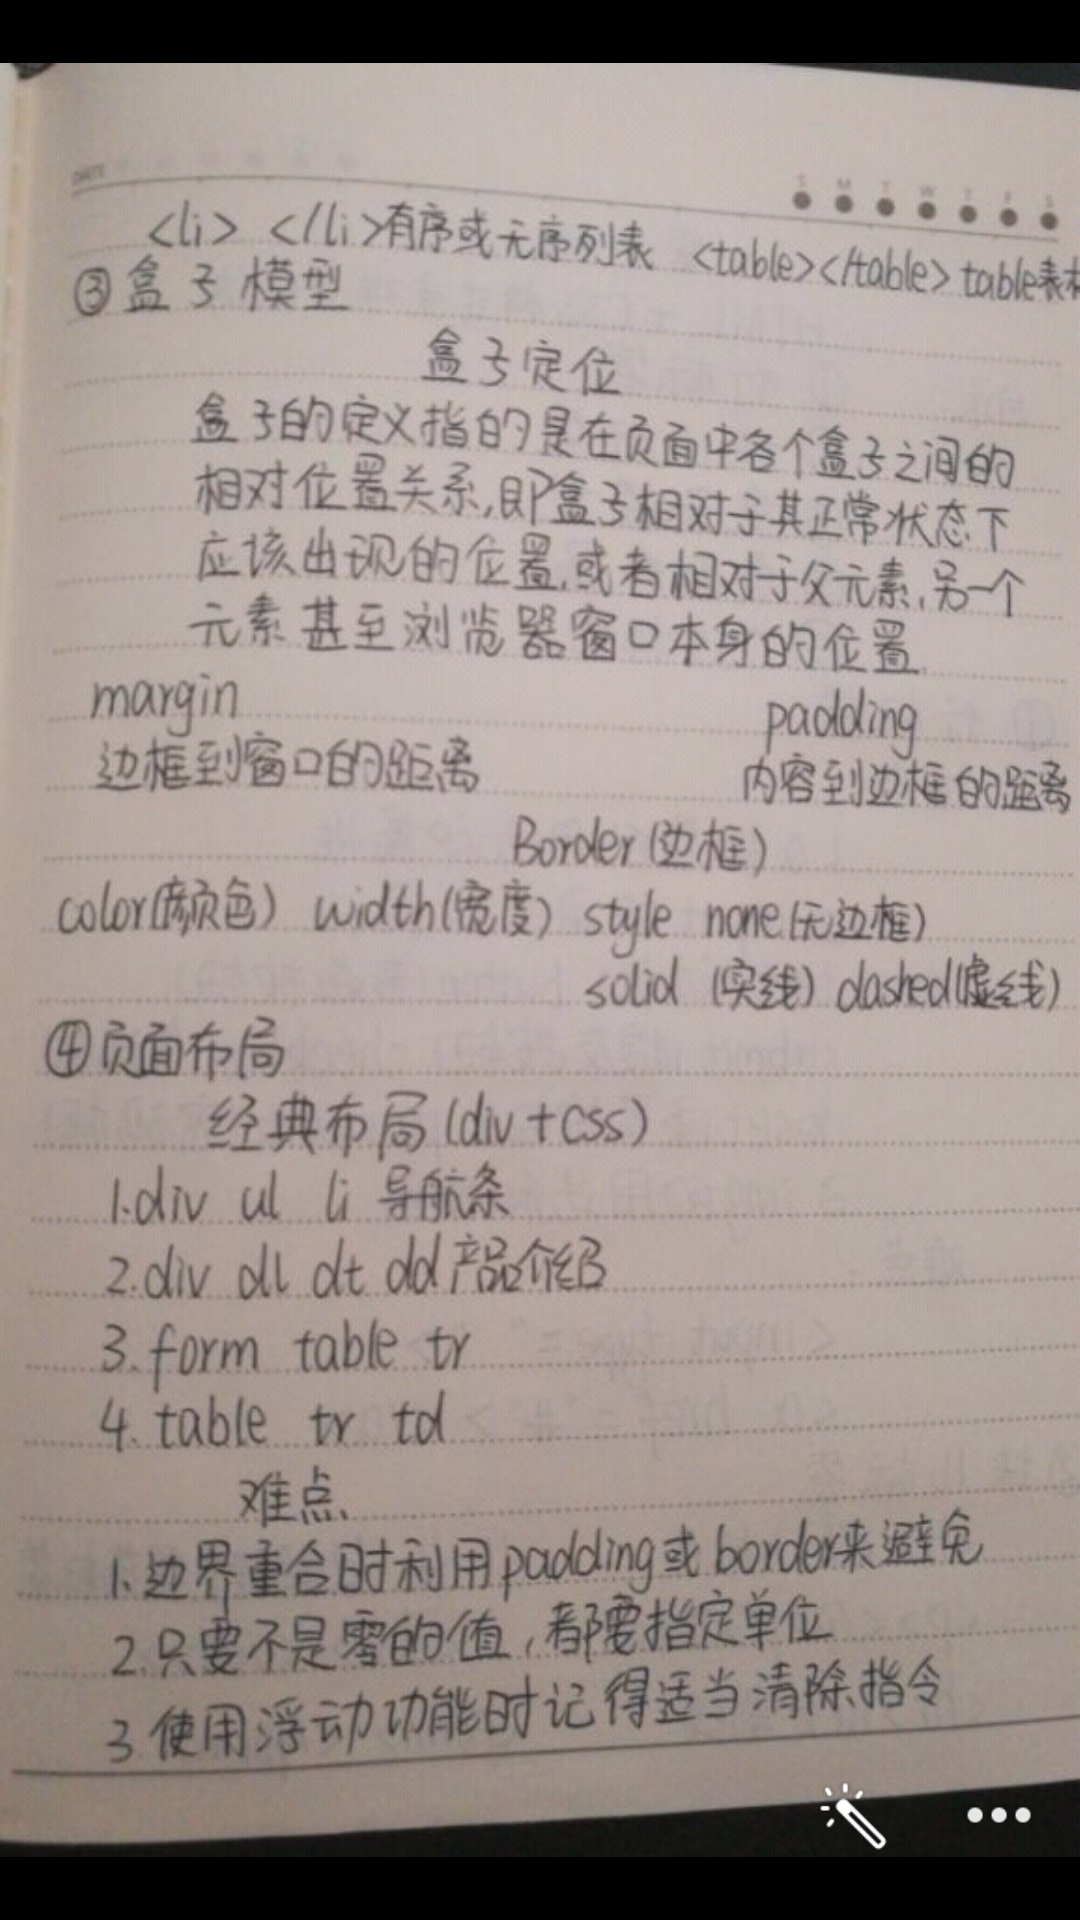 DATE
S M T W T F S
<li> </li>有序或无序列表 <table></table> table表格
③盒子模型
盒子定位
盒子的定义指的是在页面中各个盒子之间的
相对位置关系,即盒子相对于其正常状态下
应该出现的位置,或者相对于父元素,另一个
元素甚至浏览器窗口本身的位置.
margin padding
边框到窗口的距离 内容到边框的距离
Border(边框)
color(颜色) width(宽度) style none(无边框)
solid (实线) dashed(虚线)
④页面布局
经典布局(div+css)
1.div ul li 导航条
2.div dl dt dd 产品介绍
3.form table tr
4.table tr td
难点
1.边界重合时利用padding或border来避免
2.只要不是零的值,都要指定单位
3 使用浮动功能时记得适当清除指令